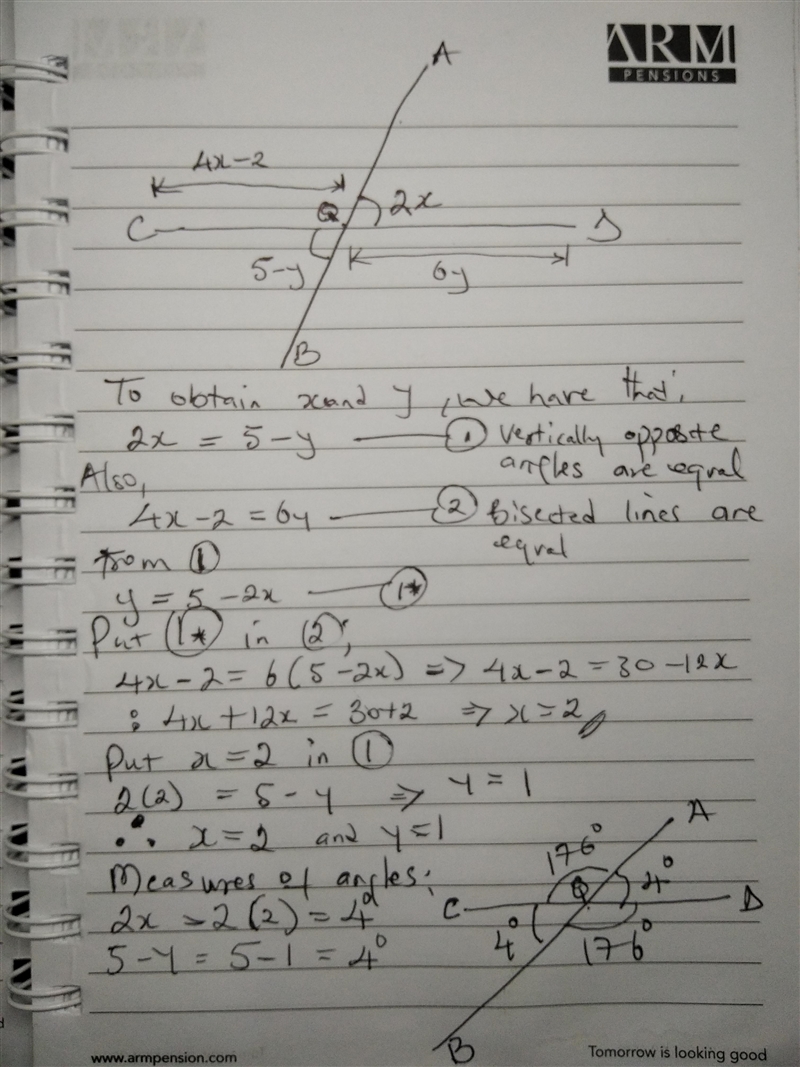 ARM
PENSIONS
A
4x-2
Q
2x
C
D
5-y
6y
B
To obtain x and y, we have that;
2x = 5-y ——— ① Vertically opposite
angles are equal
Also,
4x-2 = 6y ——— ② Bisected lines are
equal
From ①
y = 5-2x ——— (1*)
Put (1*) in (2);
4x-2 = 6(5-2x) => 4x-2 = 30-12x
: 4x+12x = 30+2 => x=2
Put x=2 in ①
2(2) = 5-y => y=1
∴ x=2 and y=1
Measures of angles:
2x = 2(2) = 4°
5-y = 5-1 = 4°
A
176°
Q
4°
C
D
4°
176°
B
www.armpension.com
Tomorrow is looking good